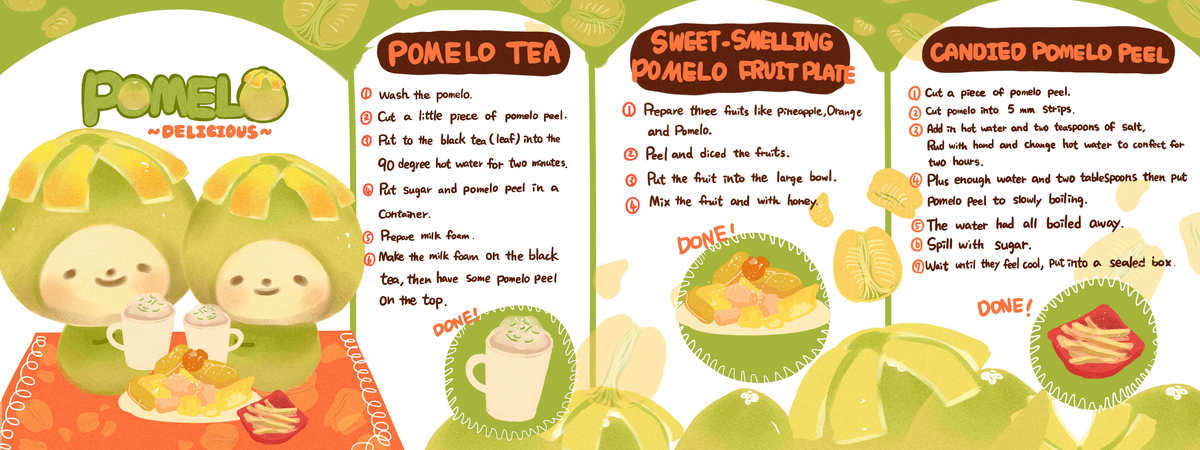 POMELO
~DELICIOUS~
POMELO TEA
① Wash the pomelo.
② Cut a little piece of pomelo peel.
③ Put to the black tea (leaf) into the
90 degree hot water for two minutes.
④ Put sugar and pomelo peel in a
Container.
⑤ Prepare milk foam.
⑥ Make the milk foam on the black
tea, then have some pomelo peel
on the top.
DONE!
SWEET-SMELLING
POMELO FRUIT PLATE
① Prepare three fruits like pineapple, Orange
and Pomelo.
② Peel and diced the fruits.
③ Put the fruit into the large bowl.
④ Mix the fruit and with honey.
DONE!
CANDIED POMELO PEEL
① Cut a piece of pomelo peel.
② Cut pomelo into 5 mm strips.
③ Add in hot water and two teaspoons of salt,
Rud with hand and change hot water to confect for
two hours.
④ Plus enough water and two tablespoons then put
Pomelo Peel to slowly boiling.
⑤ The water had all boiled away.
⑥ Spill with sugar.
⑦ Wait until they feel cool, put into a sealed box.
DONE!